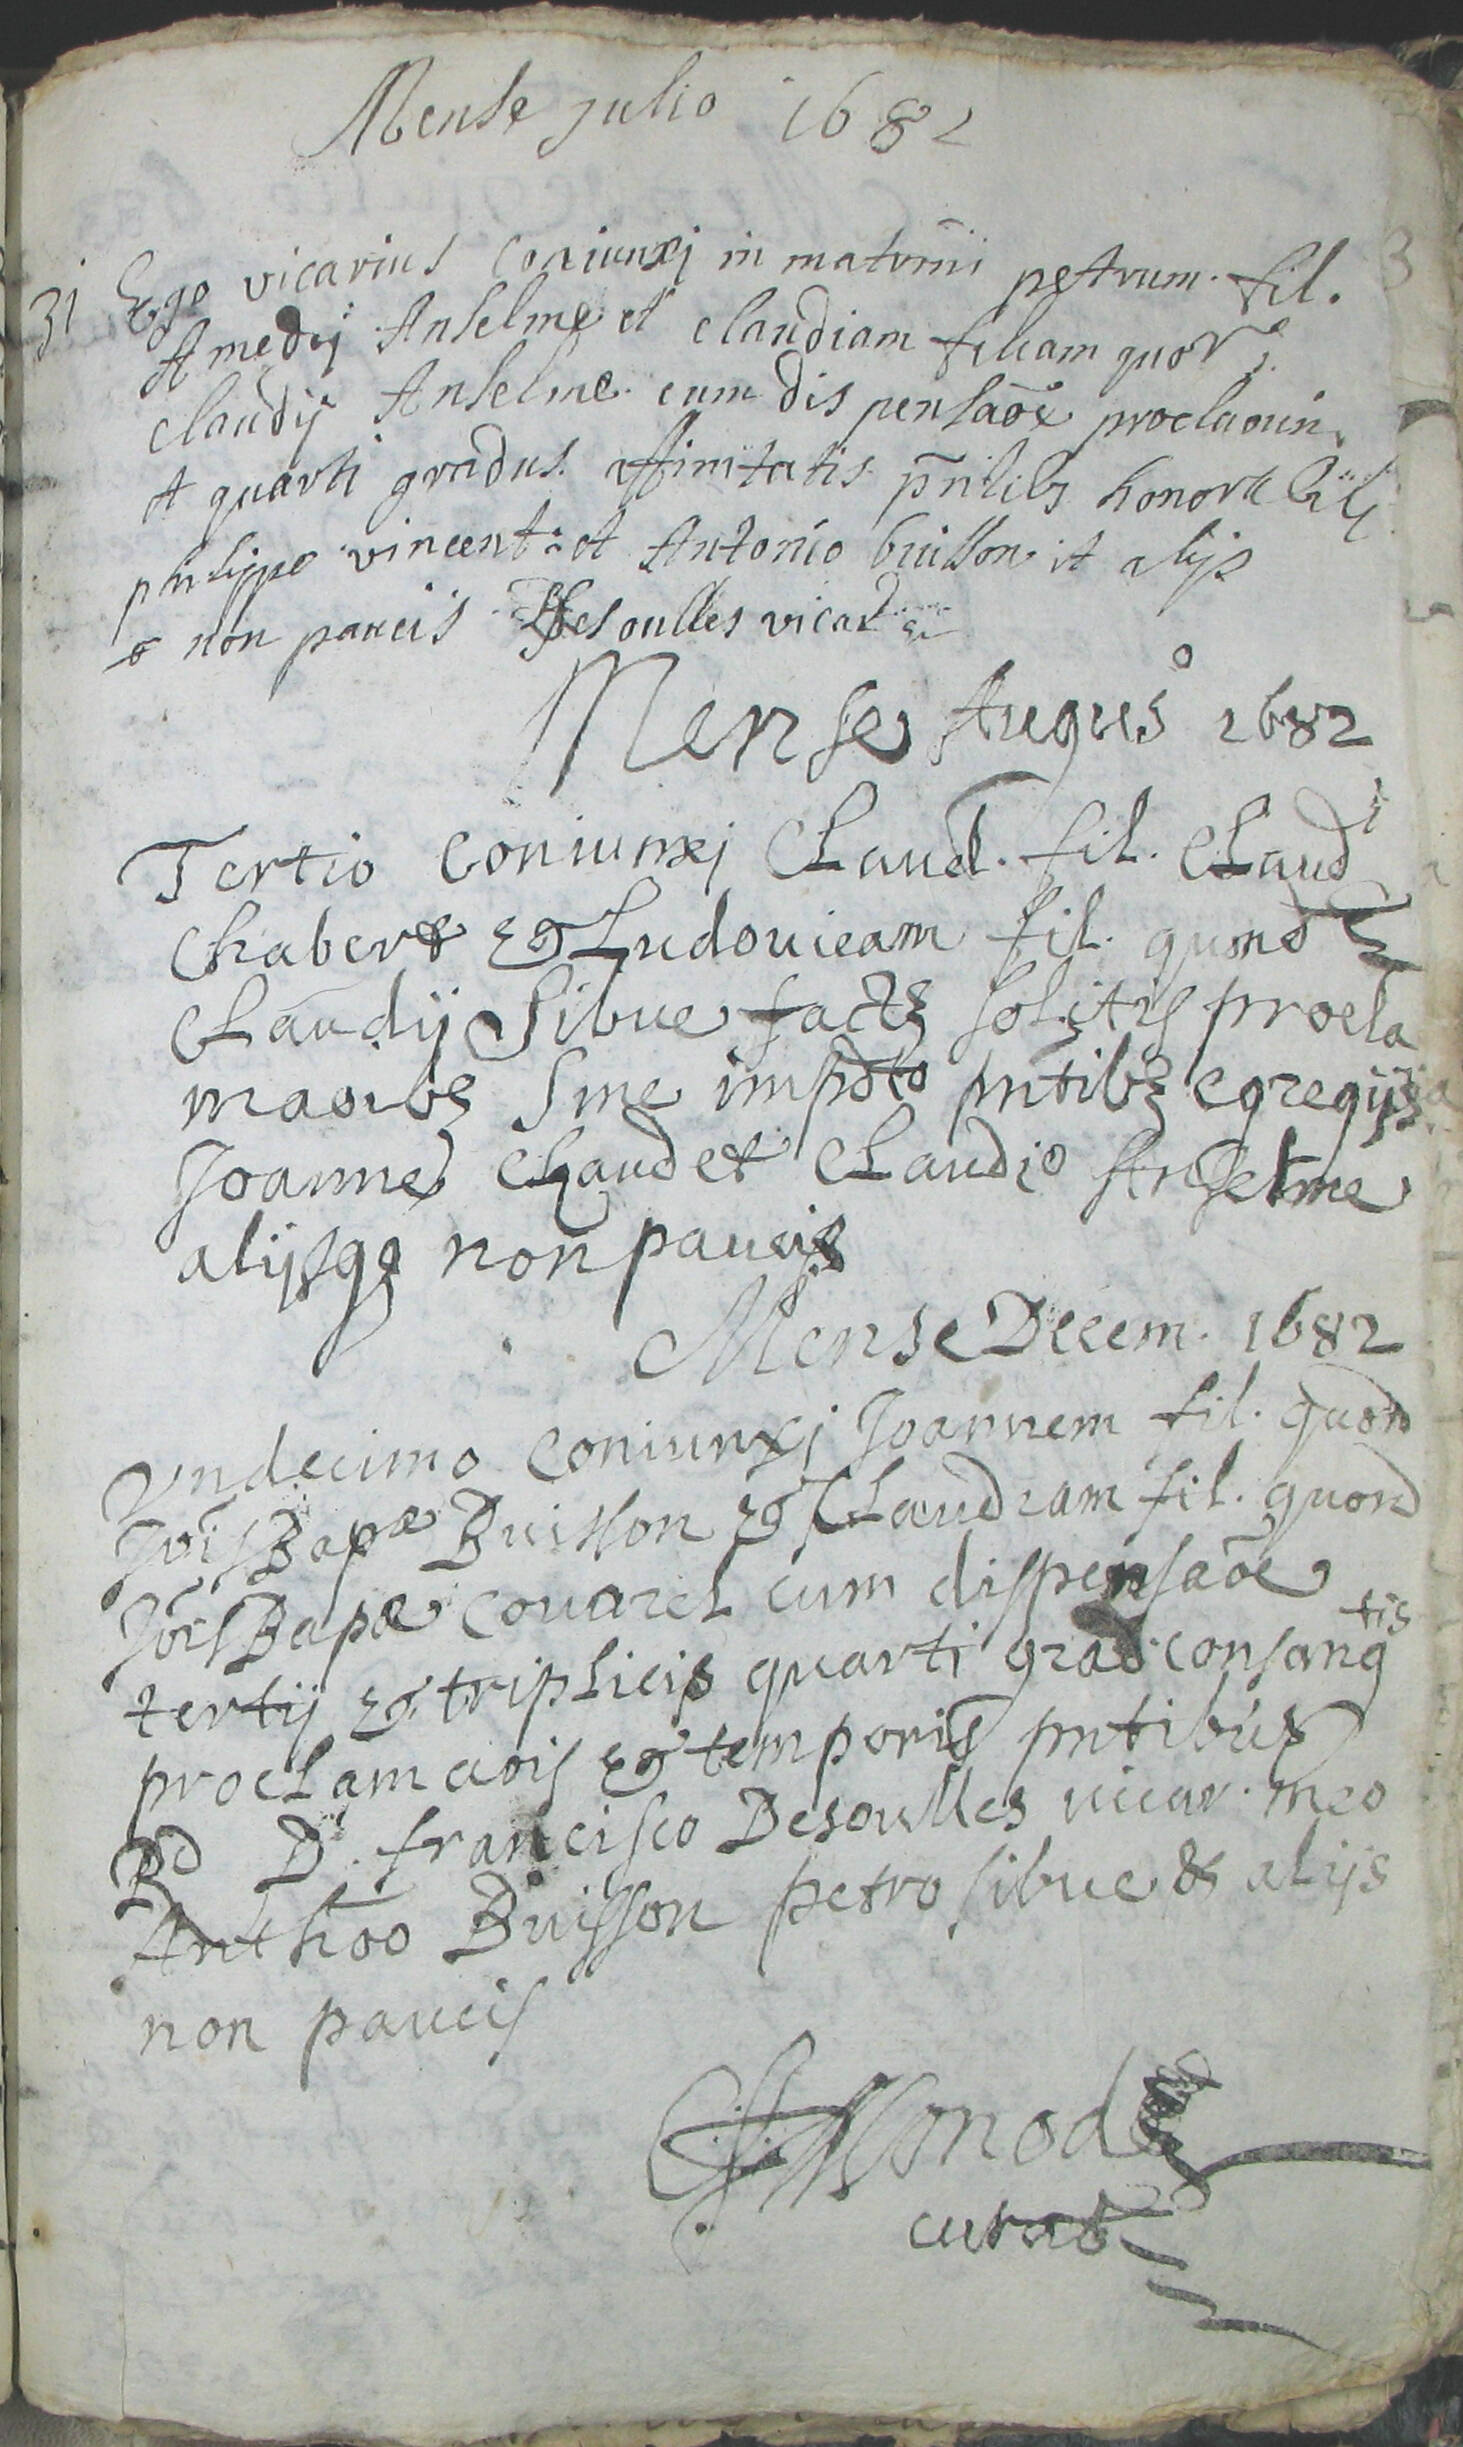 Mense julio 1682
31 Ego vicarius coniunxj in matrmii petrum. fil.
Amedij Anselme et claudiam filiam quor.
claudij Anselme. cum dispensaōe proclamin.
et quarti gradus affinitatis p̄ntibs honorabilib
philippe vincent. et Antonio buisson et alijs
non paucis Desoulles vicar
Mense Augusᵒ 1682
Tertio coniunxj Claud. fil. Claudⁱ
Chabert & Ludouicam fil. quond
Claudij Sibue factis solitis procla
maoibs sine impdto pntibs egregijs
Joanne Claudet Claudio Anselme
alijsqe non paucis
Mense Decem. 1682
Vndecimo coniunxj Joannem fil. quond
Jois Bapæ Buisson & Claudiam fil. quond
Jōis Bapæ couarel cum dispensaōe
tertij & triplicis quarti grad. consangtis
proclamaois & temporis pntibus
Rd D. francisco Desoulles vicar. meo
Anthoō Buisson petro sibue & alijs
non paucis
Monod
curat